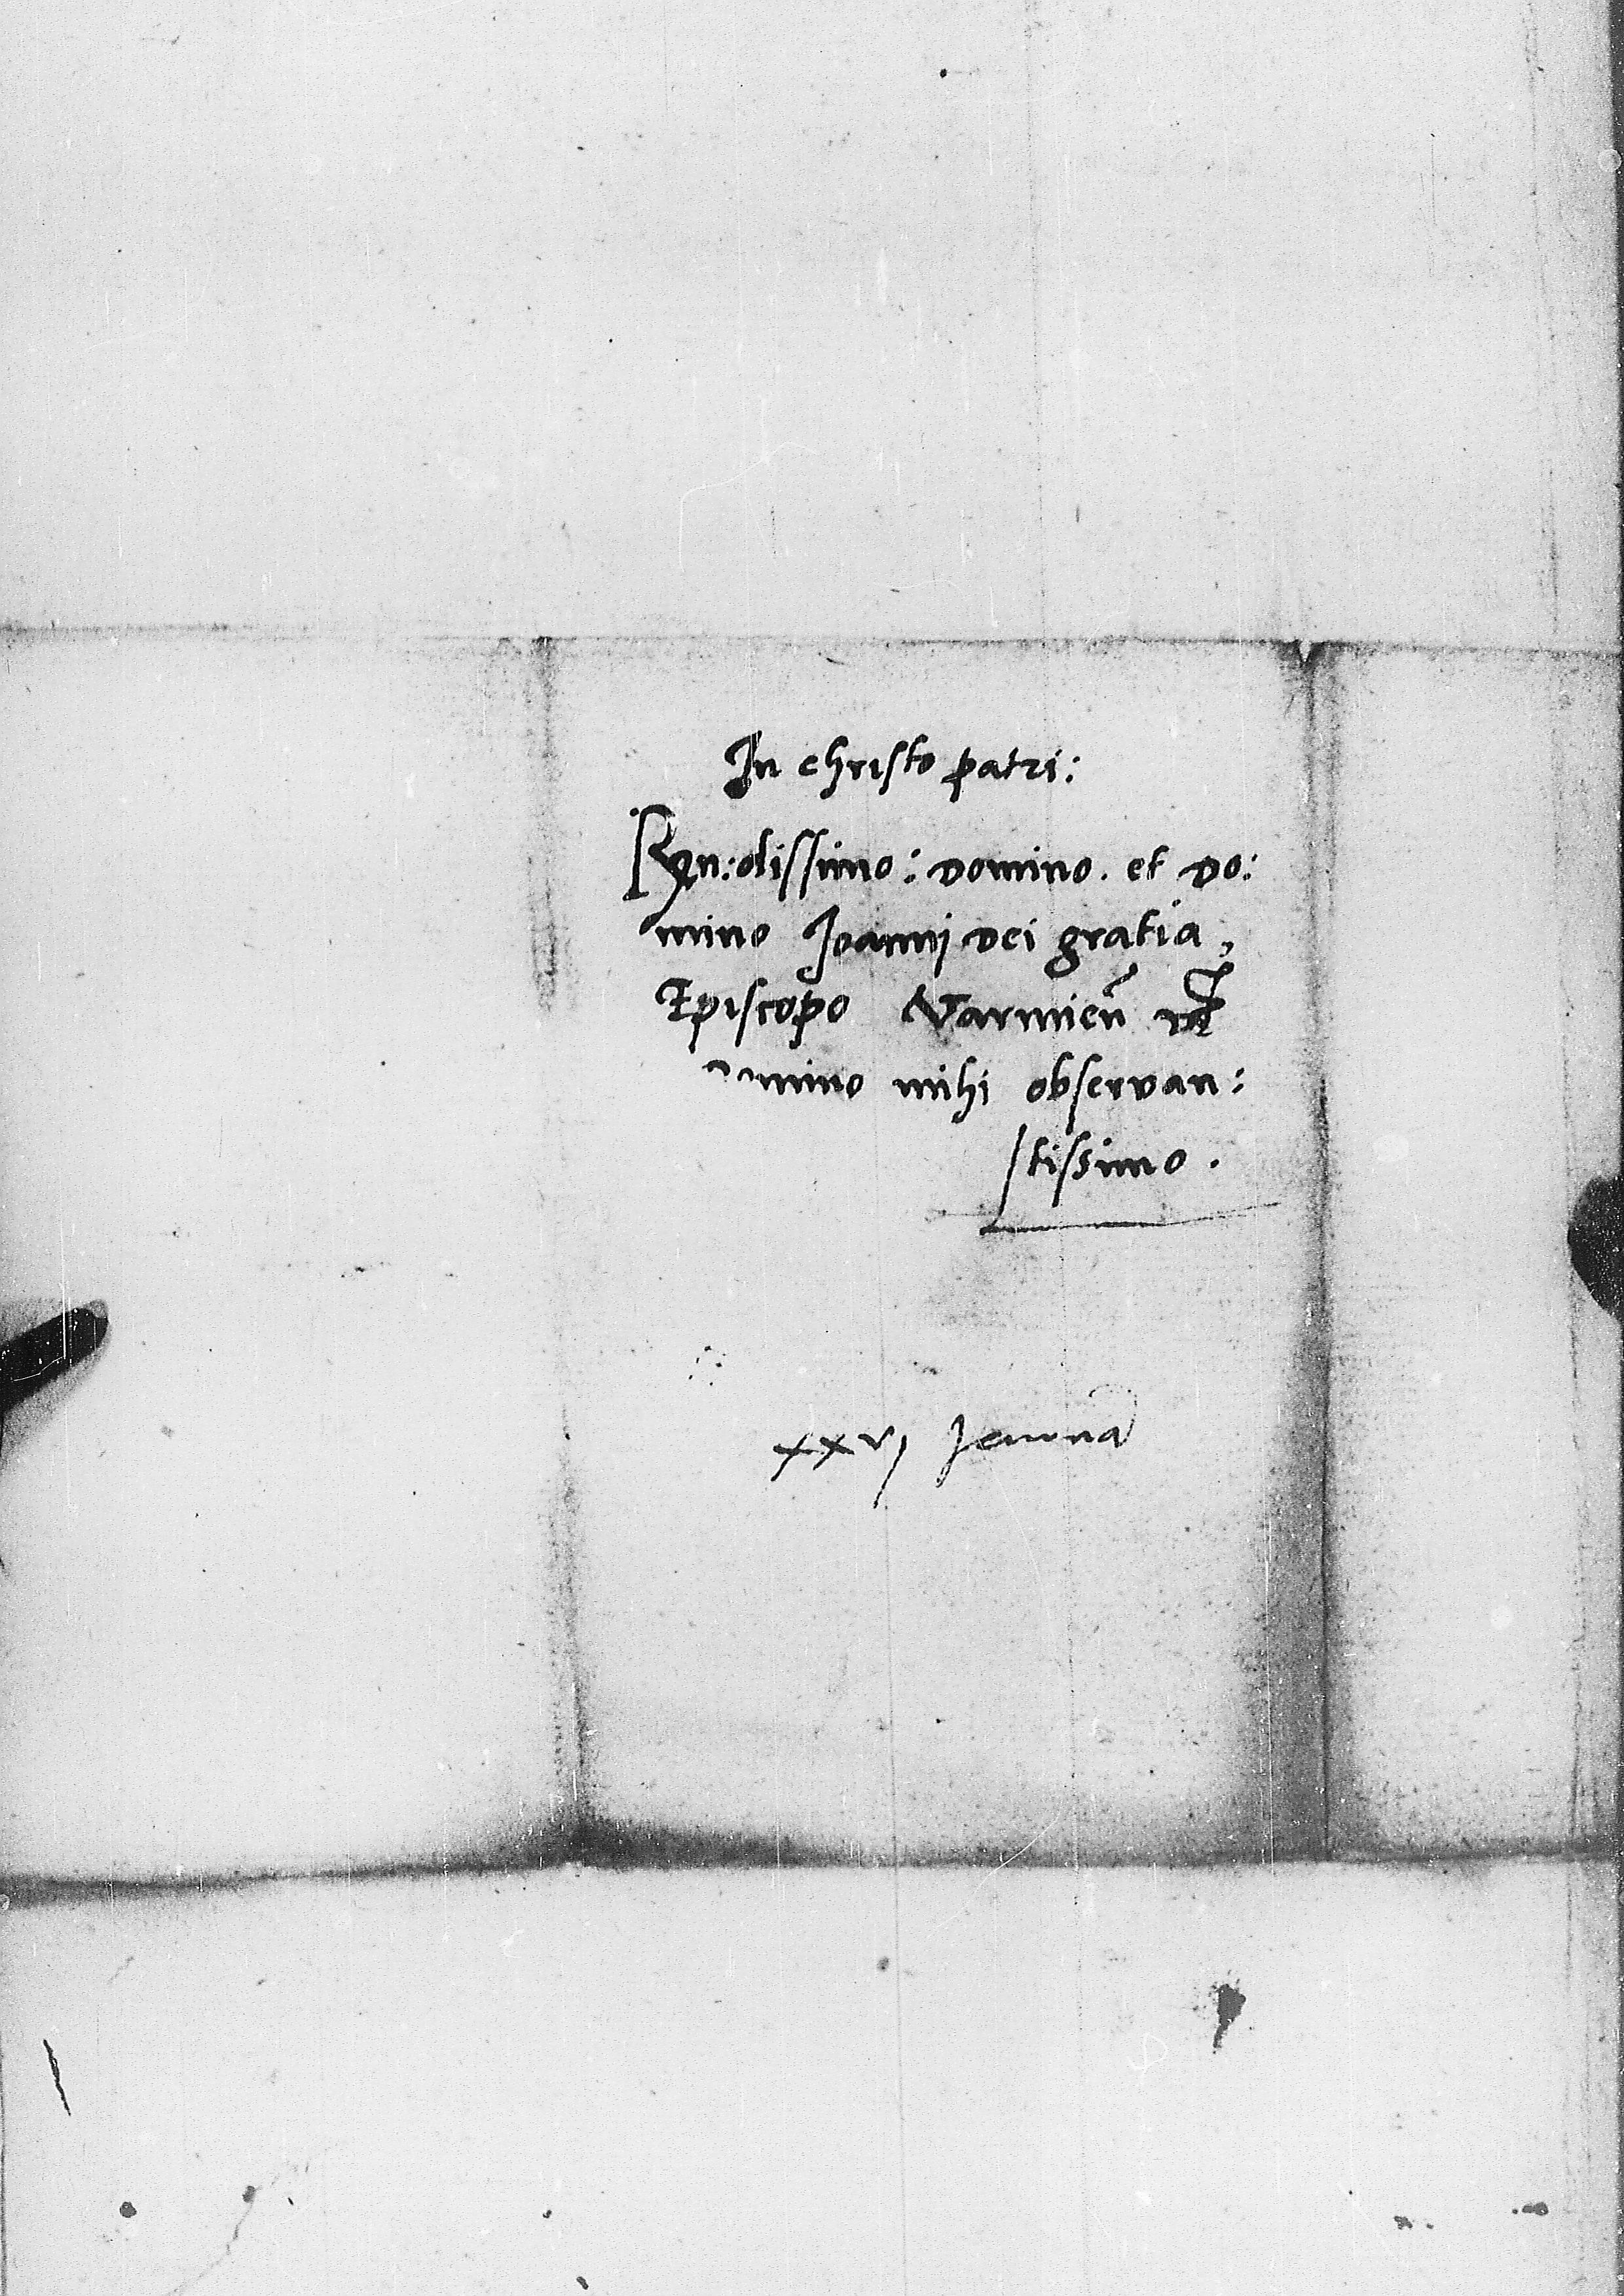 In christo patri:
Ren:dissimo: domino. et do:
mino Joannj dei gratia,
Episcopo Varmien̄
domino mihi observan:
tissimo.
xxvj Janua